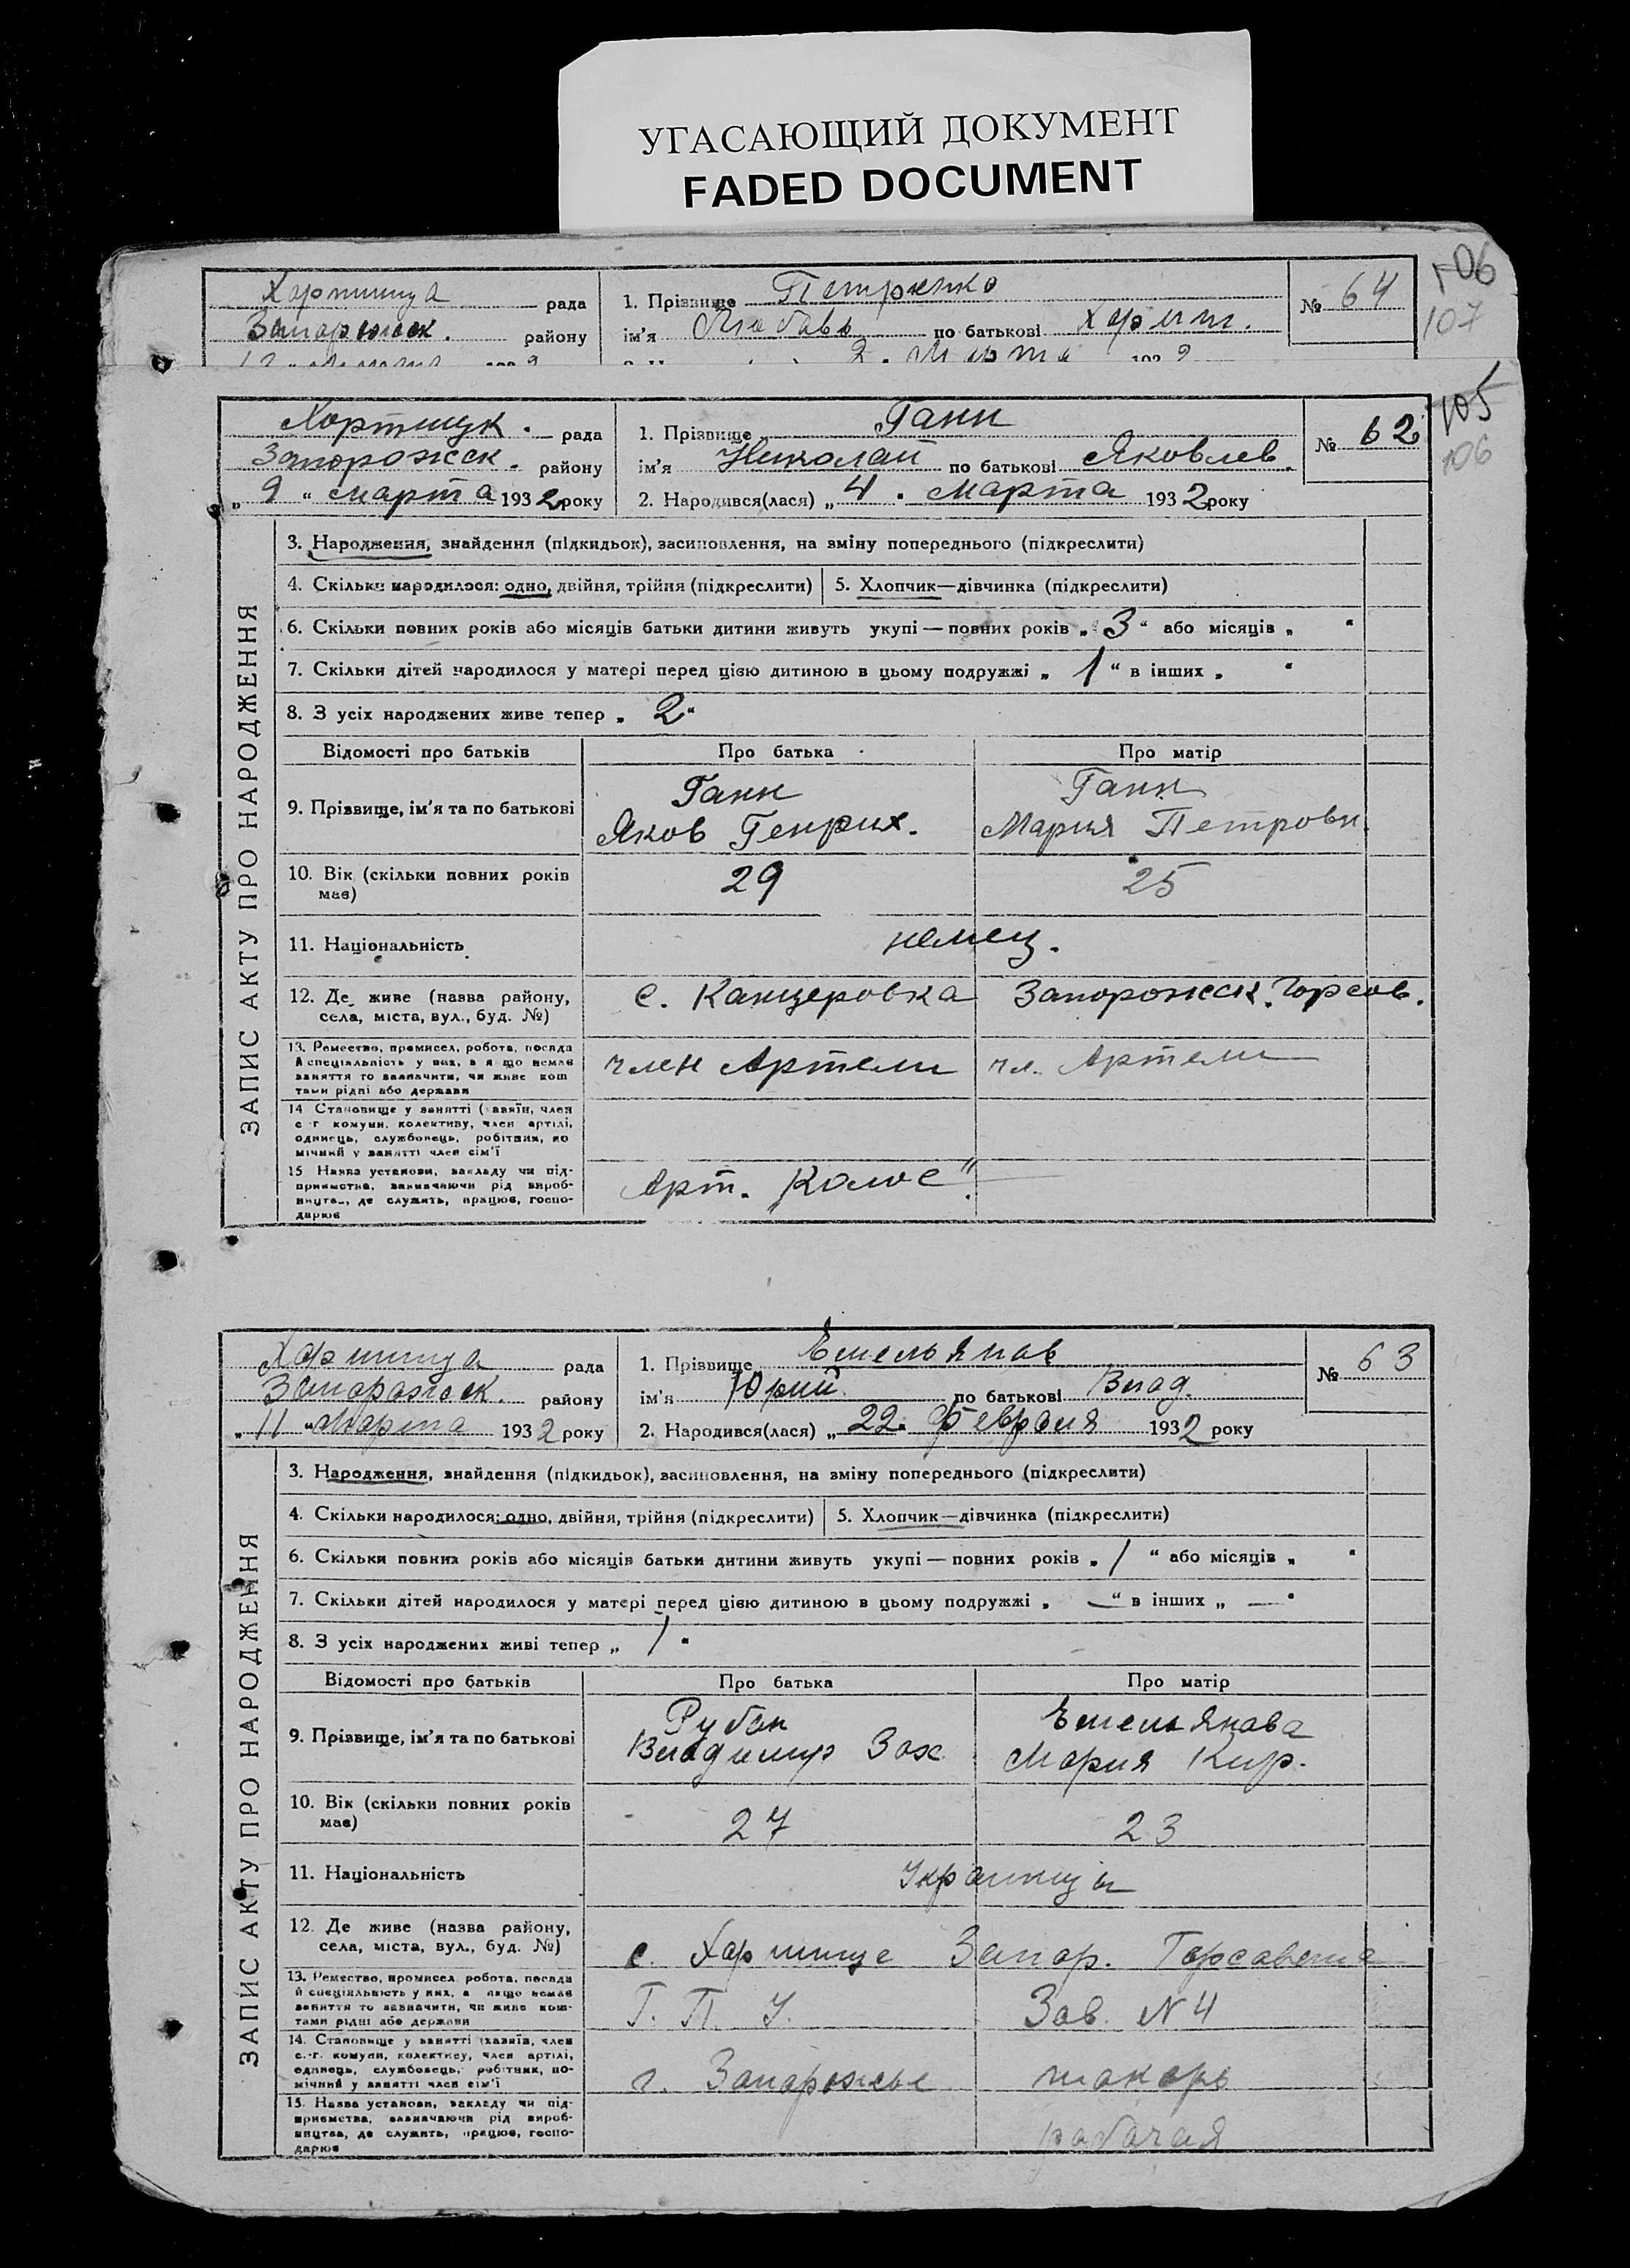 УГАСАЮЩИЙ ДОКУМЕНТ
FADED DOCUMENT
106
107
Хортица рада
Запорожск. району
1. Прізвище Петренко
ім'я Любовь по батькові Харит.
№ 64
2. Марта
105
106
Хортицк. рада
Запорожск. району
„ 9 “ марта 1932 року
1. Прізвище Ганн
ім'я Николай по батькові Яковлев.
2. Народився(лася) „ 4 . Марта 1932 року
№ 62
ЗАПИС АКТУ ПРО НАРОДЖЕННЯ
3. Народження, знайдення (підкидьок), засиновлення, на зміну попереднього (підкреслити)
4. Скільки народилося: одно, двійня, трійня (підкреслити) 5. Хлопчик—дівчинка (підкреслити)
6. Скільки повних років або місяців батьки дитини живуть укупі — повних років „ 3 “ або місяців „ “
7. Скільки дітей народилося у матері перед цією дитиною в цьому подружжі „ 1 “ в інших „ “
8. З усіх народжених живе тепер „ 2 “
Відомості про батьків Про батька Про матір
9. Прізвище, ім'я та по батькові
Ганн
Яков Генрих.
Ганн
Мария Петровн.
10. Вік (скільки повних років
має)
29 25
11. Національність немец.
12. Де живе (назва району,
села, міста, вул., буд. №)
с. Канцеровка Запорожск. Горсов.
13. Ремество, промисел, робота, посада
й спеціальність у них, а якщо немає
заняття то зазначити, чи живе кош
тами рідні або держави
член Артели чл. Артели
14 Становище у занятті (хазяїн, член
с-г комуни, колективу, член артілі,
одинець, службовець, робітник, по
мічний у занятті член сім'ї
15 Назва установи, закладу чи під-
приємства, зазначаючи рід вироб-
ництва, де служить, працює, госпо-
дарює
Арт. Колос".
Хортица рада
Запорожск. району
„ 11 “ Марта 1932 року
1. Прізвище Емельянов
ім'я Юрий по батькові Влад.
2. Народився(лася) „ 22 “ февраля 1932 року
№ 63
ЗАПИС АКТУ ПРО НАРОДЖЕННЯ
3. Народження, знайдення (підкидьок), засиновлення, на зміну попереднього (підкреслити)
4. Скільки народилося: одно, двійня, трійня (підкреслити) 5. Хлопчик—дівчинка (підкреслити)
6. Скільки повних років або місяців батьки дитини живуть укупі — повних років „ 1 “ або місяців „ “
7. Скільки дітей народилося у матері перед цією дитиною в цьому подружжі „ — “ в інших „ — “
8. З усіх народжених живі тепер „ 1 “
Відомості про батьків Про батька Про матір
9. Прізвище, ім'я та по батькові
Рубан
Владимир Зах
Емельянова
Мария Кир.
10. Вік (скільки повних років
має)
27 23
11. Національність Украинцы
12. Де живе (назва району,
села, міста, вул., буд. №)
с. Хортице Запор. Горсовета
13. Ремество, промисел, робота, посада
й спеціальність у них, а якщо немає
заняття то зазначити, чи живе кош-
тами рідні або держави
Г. П. У. Зав. N 4
14. Становище у занятті (хазяїн, член
с.-г. комуни, колективу, член артілі,
одинець, службовець, робітник, по-
мічний у занятті член сім'ї
г. Запорожье токарь
15. Назва установи, закладу чи під-
приємства, зазначаючи рід вироб-
ництва, де служить, працює, госпо-
дарює
рабочая